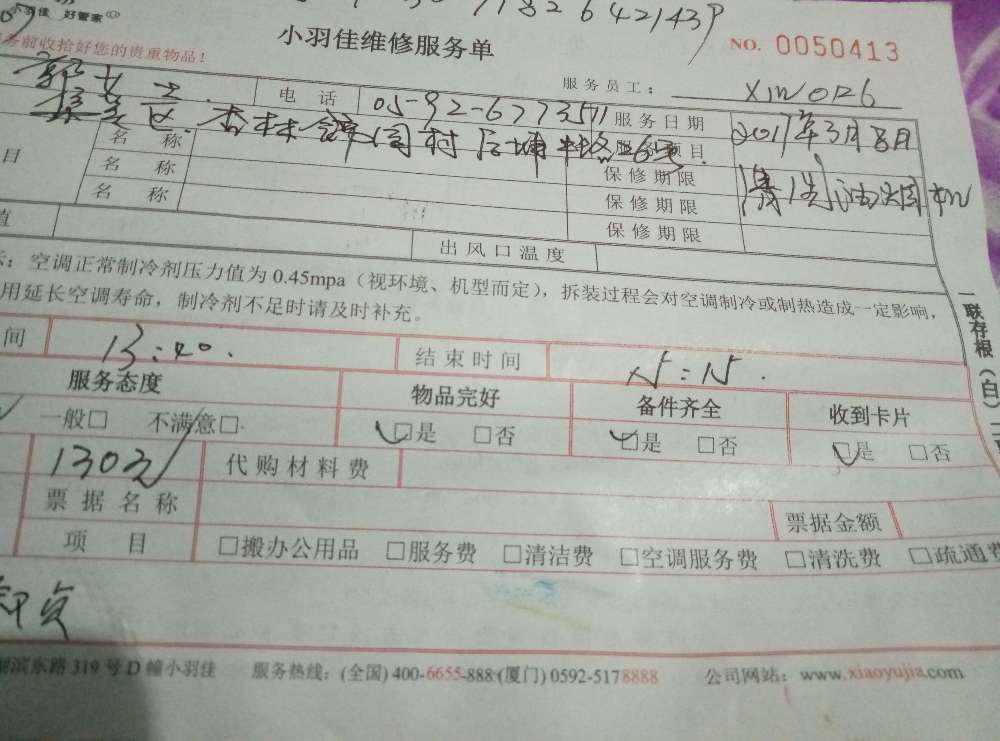 小羽佳 好管家
1826421439
务前收拾好您的贵重物品！
小羽佳维修服务单
NO. 0050413
服务员工： XJW0126
女士 电话 05-92-6773511 服务日期 2017年3月8日
区 杏林 村 服务项目 清洗油烟机
目 名称 保修期限
名称 保修期限
名称 保修期限
值 出风口温度
示：空调正常制冷剂压力值为 0.45mpa（视环境、机型而定），拆装过程会对空调制冷或制热造成一定影响，
用延长空调寿命，制冷剂不足时请及时补充。
间 13:40. 结束时间 15:15.
服务态度 物品完好 备件齐全 收到卡片
一般□ 不满意□ □是 □否 □是 □否 □是 □否
130元 代购材料费
票据名称 票据金额
项目 □搬办公用品 □服务费 □清洁费 □空调服务费 □清洗费 □疏通费
一联存根（白）二
滨东路 319 号 D 幢小羽佳 服务热线：(全国) 400-6655-888·(厦门) 0592-5178888 公司网站：www.xiaoyujia.com